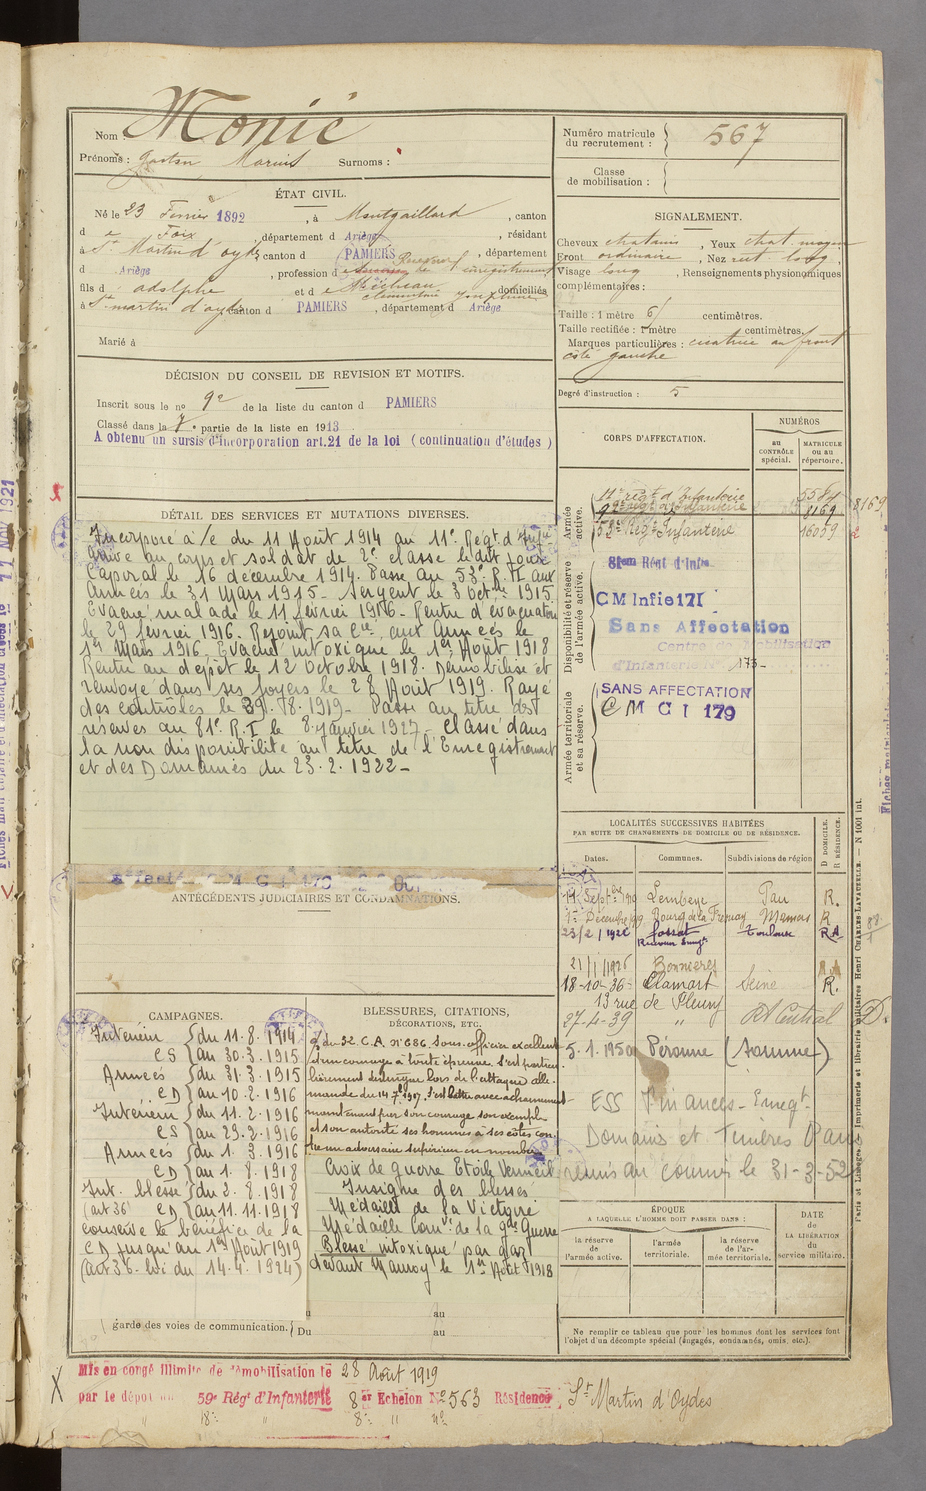 Nom : Monié
Prénoms : Gaston Marius Surnoms :
Numéro matricule du recrutement : 567
Classe de mobilisation :
ÉTAT CIVIL.
Né le 23 Février 1892, à Montgaillard, canton
de Foix, département d Ariège, résidant
à St Martin d'oydes canton d PAMIERS, département
d Ariège, profession de Receveur de l'enregistrement
fils d' adolphe et de
Clémentine Joséphine domiciliés
à St martin d'oydes canton d PAMIERS, département d Ariège
Marié à
SIGNALEMENT.
Cheveux chatains, Yeux chat. moyen
Front ordinaire, Nez rect. long,
Visage long, Renseignements physionomiques
complémentaires :
Taille : 1 mètre 6 centimètres.
Taille rectifiée : 1 mètre centimètres.
Marques particulières : cicatrice au front
côté gauche
Degré d'instruction : 5
DÉCISION DU CONSEIL DE REVISION ET MOTIFS.
Inscrit sous le no 92 de la liste du canton d PAMIERS
Classé dans la 7e partie de la liste en 1913
A obtenu un sursis d'incorporation art. 21 de la loi (continuation d'études)
DÉTAIL DES SERVICES ET MUTATIONS DIVERSES.
Incorporé à/c du 11 Août 1914 au 11e Regt d'Infie
Arrivé au corps et soldat de 2e classe le dit jour
Caporal le 16 decembre 1914. Passé au 53e R.I aux
Armées le 31 Mars 1915 - Sergent le 3 Octbre 1915.
Evacué malade le 11 fevrier 1916 - Rentré d'evacuation
le 29 fevrier 1916. Rejoint sa Cie aux Armées le
1er Mars 1916. Evacué intoxiqué le 1er Août 1918
Rentré au dépôt le 12 Octobre 1918. Démobilisé et
renvoyé dans ses foyers le 28 Août 1919. Rayé
des contrôles le 29.8.1919 - Passé au titre des
réserves au 81e R.I le 8 janvier 1927 - Classé dans
la non disponibilité au titre de l'Enregistrement
et des Domaines du 23.2.1922 -
CORPS D'AFFECTATION.
NUMÉROS
au CONTRÔLE spécial.
MATRICULE ou au répertoire.
Armée active.
11e regt d'Infanterie 5584
9e regt d'Infanterie 8169
53e Regt Infanterie 16059
8169
2
Disponibilité et réserve de l'armée active.
81eme Régt d'Infie
C M Infie 171
Sans Affectation
Centre de Mobilisation
d'Infanterie 173
Armée territoriale et sa réserve.
SANS AFFECTATION
C M G I 179
LOCALITÉS SUCCESSIVES HABITÉES
PAR SUITE DE CHANGEMENTS DE DOMICILE OU DE RÉSIDENCE.
Dates. Communes. Subdivisions de région D DOMICILE. R RÉSIDENCE.
11 Septbre 1919 Lembeye Pau R.
1er Décembre 1919 Bourg de la Fresnay Mamers R
23/2/1921 fossat Toulouse RA
21/1/1926 Bonnières
18-10-36- Clamart Seine R.
13 rue de Cluny
27-4-39 " Central D.
5.1.1950 Péronne (Somme)
ESS Finances - Enregt -
Domaines et Timbres Paris
remis au courrier le 31-3-52
ANTÉCÉDENTS JUDICIAIRES ET CONDAMNATIONS.
CAMPAGNES.
Intérieur du 11.8.1914
CS au 30.3.1915
Armées du 31.3.1915
CD au 10.2.1916
Intérieur du 11.2.1916
CS au 29.2.1916
Armées du 1.3.1916
CD au 1.8.1918
Int. blessé du 2.8.1918
(art 36 CD au 11.11.1918
conserve le bénéfice de la
CD jusqu'au 1er Août 1919
(art 36. loi du 14.4.1924)
garde des voies de communication. Du au
au
BLESSURES, CITATIONS,
DÉCORATIONS, ETC.
du 32 C.A. n° 686 Sous-officier excellent
d'un courage à toute épreuve. S'est particu-
lièrement distingué lors de l'attaque alle-
mande du 14 7bre 1917. S'est battu avec acharnement
maintenant par son courage son exemple
et son autorité ses hommes à ses côtés con-
tre un adversaire supérieur en nombre
Croix de guerre Etoile Vermeil
Insigne des blessés
Médaille de la Victoire
Médaille Comve de la gde Guerre
Blessé intoxiqué par gaz
devant Mauroy le 1er Août 1918
ÉPOQUE
A LAQUELLE L'HOMME DOIT PASSER DANS :
la réserve de l'armée active.
l'armée territoriale.
la réserve de l'armée territoriale.
DATE de LA LIBÉRATION du service militaire.
Ne remplir ce tableau que pour les hommes dont les services font
l'objet d'un décompte spécial (engagés, condamnés, omis, etc.).
Mis en congé illimité de démobilisation le 28 Août 1919
par le dépôt du 59e Régt d'Infanterie 8er Echelon No 563 Résidence St Martin d'Oydes
Paris et Limoges. Imprimerie et librairie militaires Henri CHARLES-LAVAUZELLE. — N 1001 int.